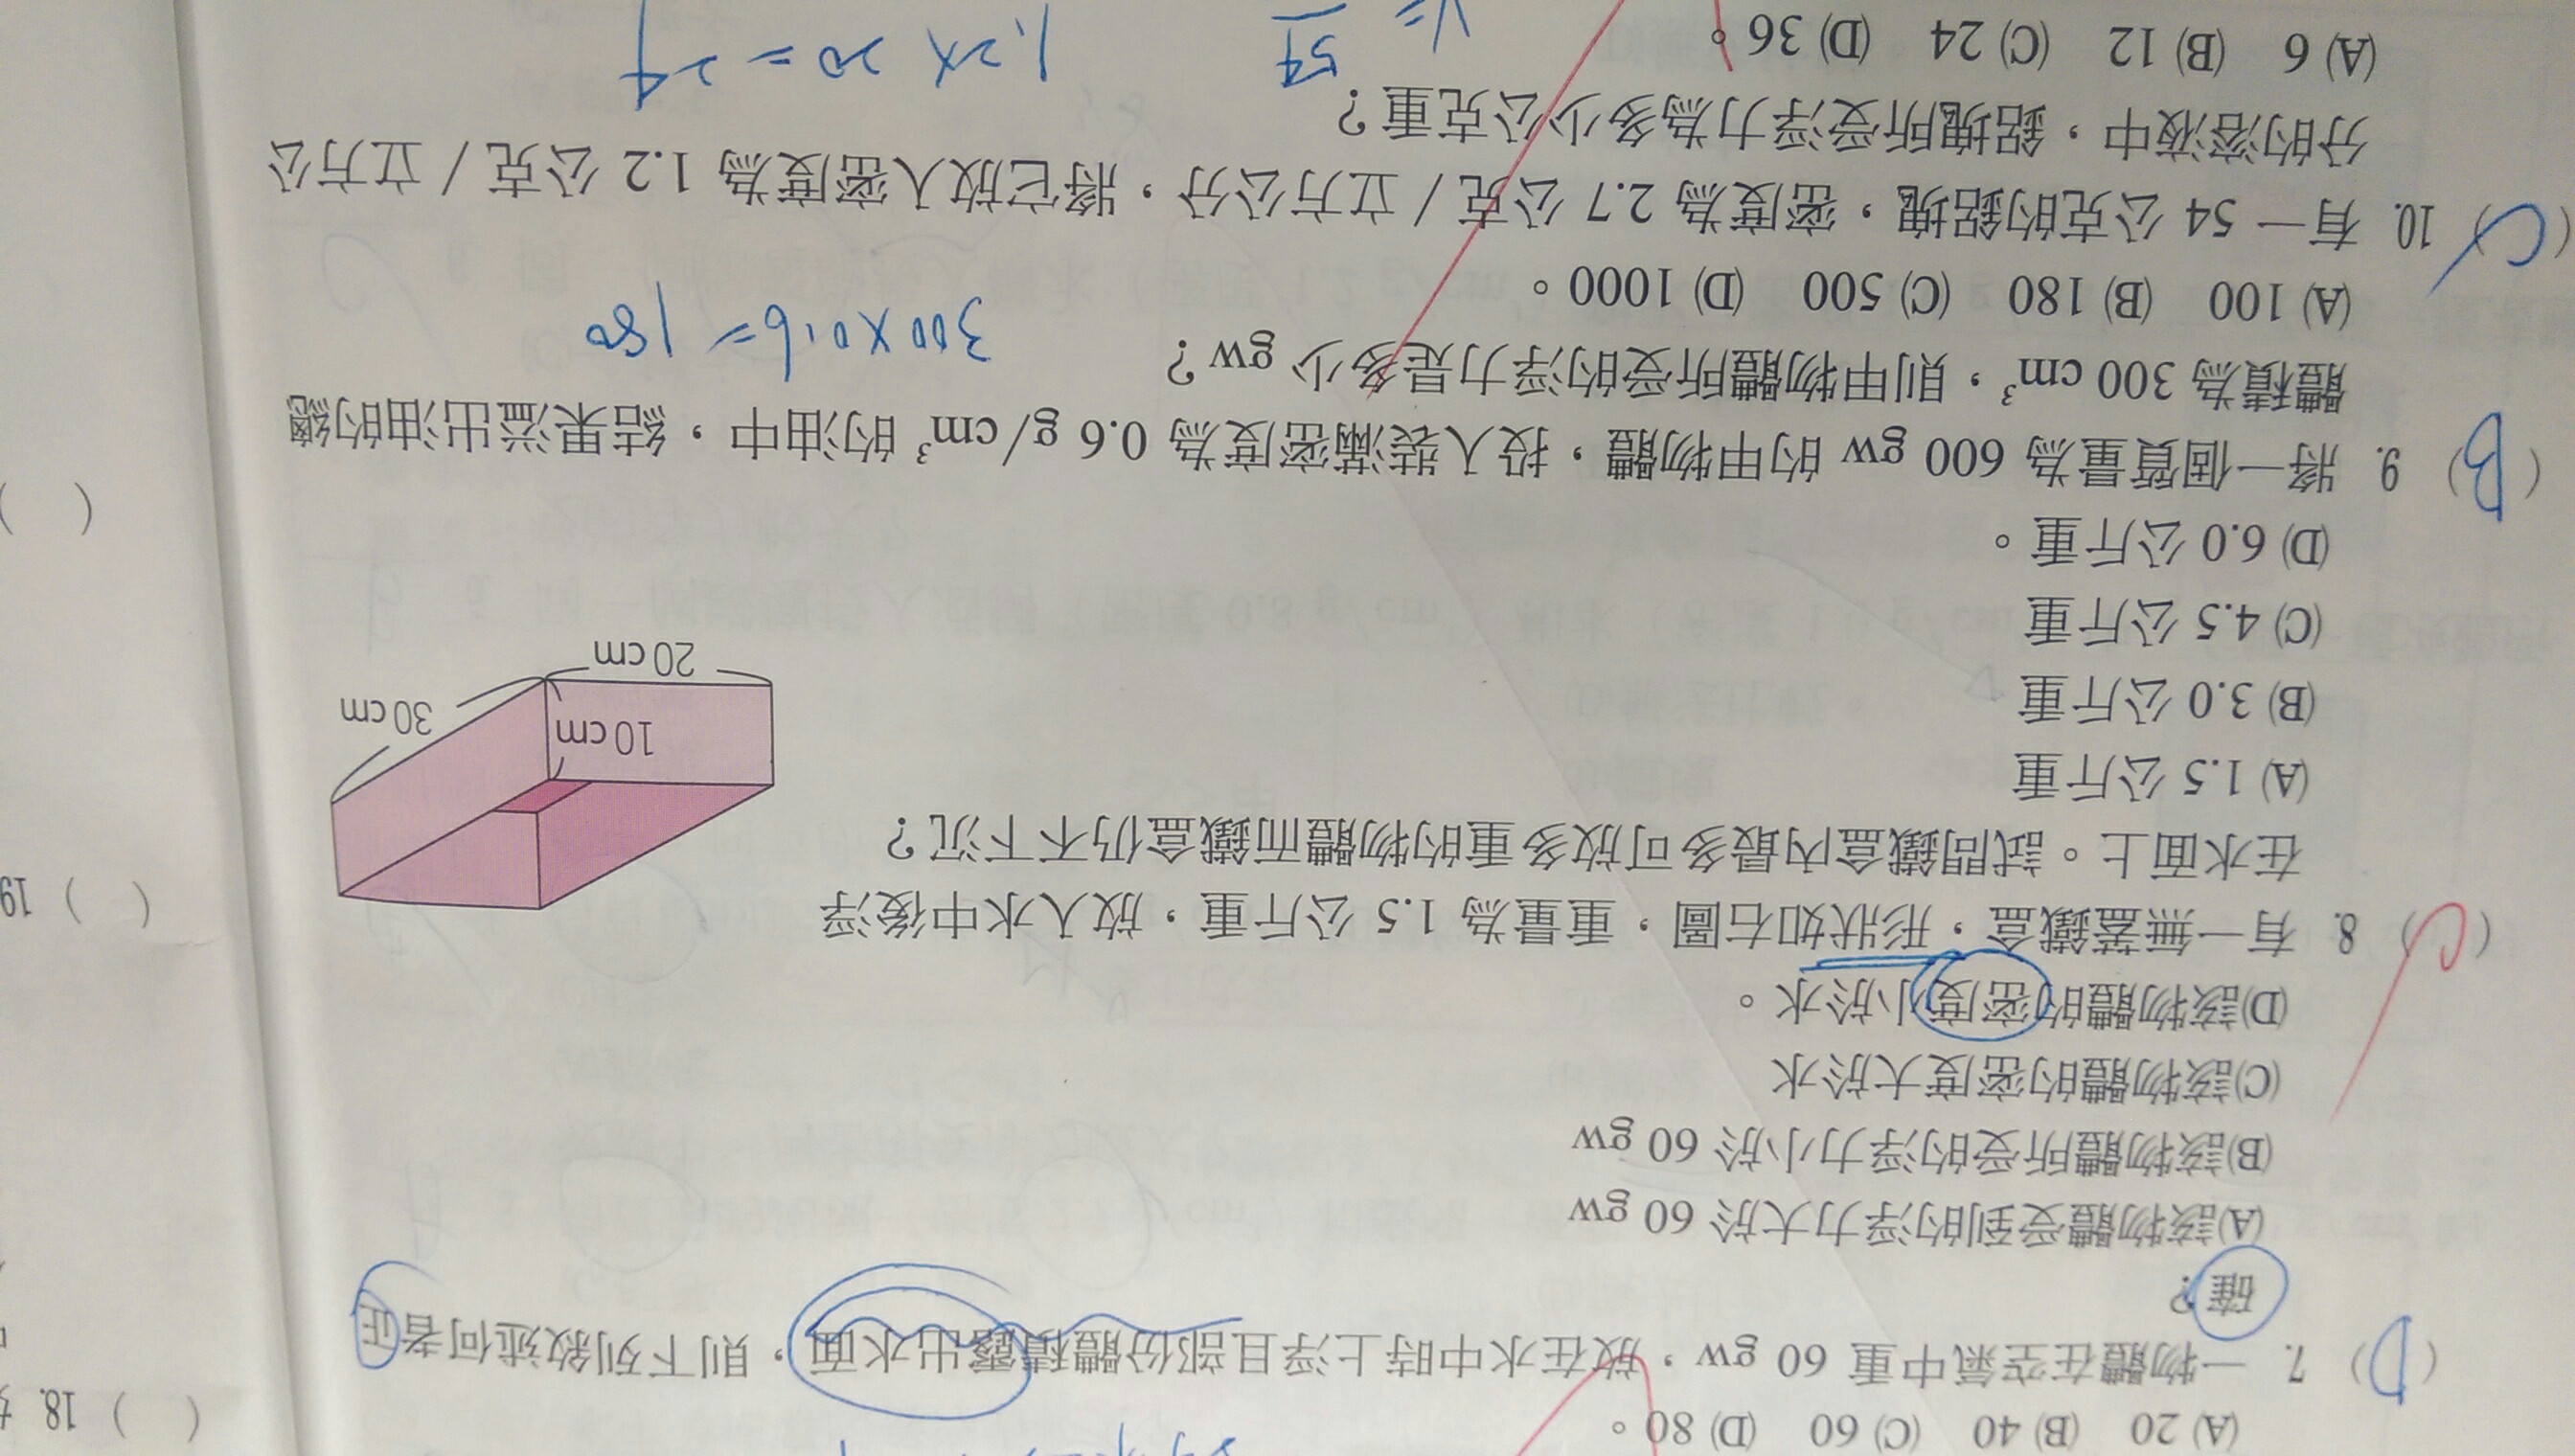 (A) 20 (B) 40 (C) 60 (D) 80。
( D ) 7. 一物體在空氣中重 60 gw，放在水中時上浮且部份體積露出水面，則下列敘述何者正
確？
(A)該物體受到的浮力大於 60 gw
(B)該物體所受的浮力小於 60 gw
(C)該物體的密度大於水
(D)該物體的密度小於水。
( C ) 8. 有一無蓋鐵盒，形狀如右圖，重量為 1.5 公斤重，放入水中後浮
在水面上。試問鐵盒內最多可放多重的物體而鐵盒仍不下沉？
(A) 1.5 公斤重
(B) 3.0 公斤重
(C) 4.5 公斤重
(D) 6.0 公斤重。
10 cm
30 cm
20 cm
( B ) 9. 將一個質量為 600 gw 的甲物體，投入裝滿密度為 0.6 g/cm³ 的油中，結果溢出油的總
體積為 300 cm³，則甲物體所受的浮力是多少 gw？
(A) 100 (B) 180 (C) 500 (D) 1000。
300×0.6=180
( C ) 10. 有一 54 公克的鋁塊，密度為 2.7 公克／立方公分，將它放入密度為 1.2 公克／立方公
分的溶液中，鋁塊所受浮力為多少公克重？
(A) 6 (B) 12 (C) 24 (D) 36。
V= 54
1.2×20=24
( ) 18.
( ) 19
( )